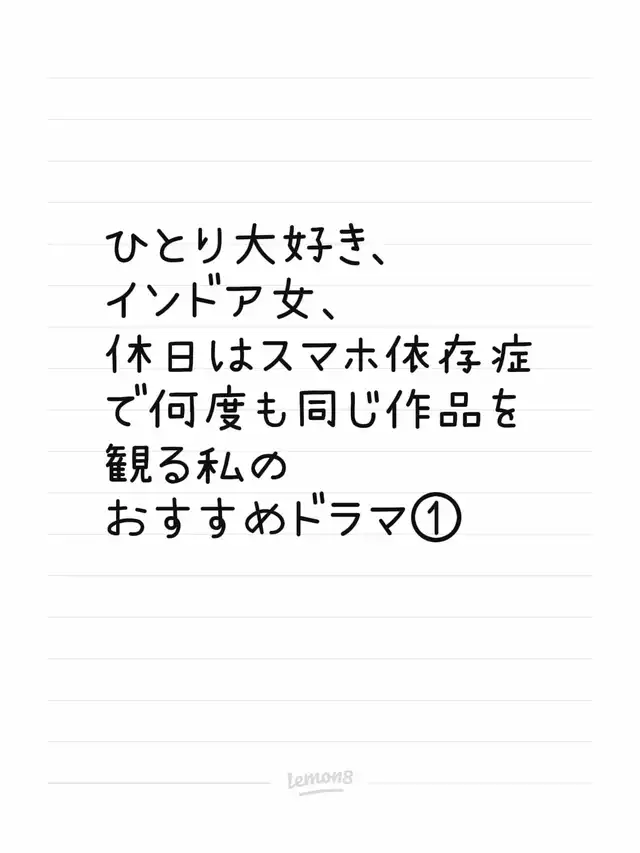 ひとり大好き、
インドア女、
休日はスマホ依存症
で何度も同じ作品を
観る私の
おすすめドラマ①
Lemon8